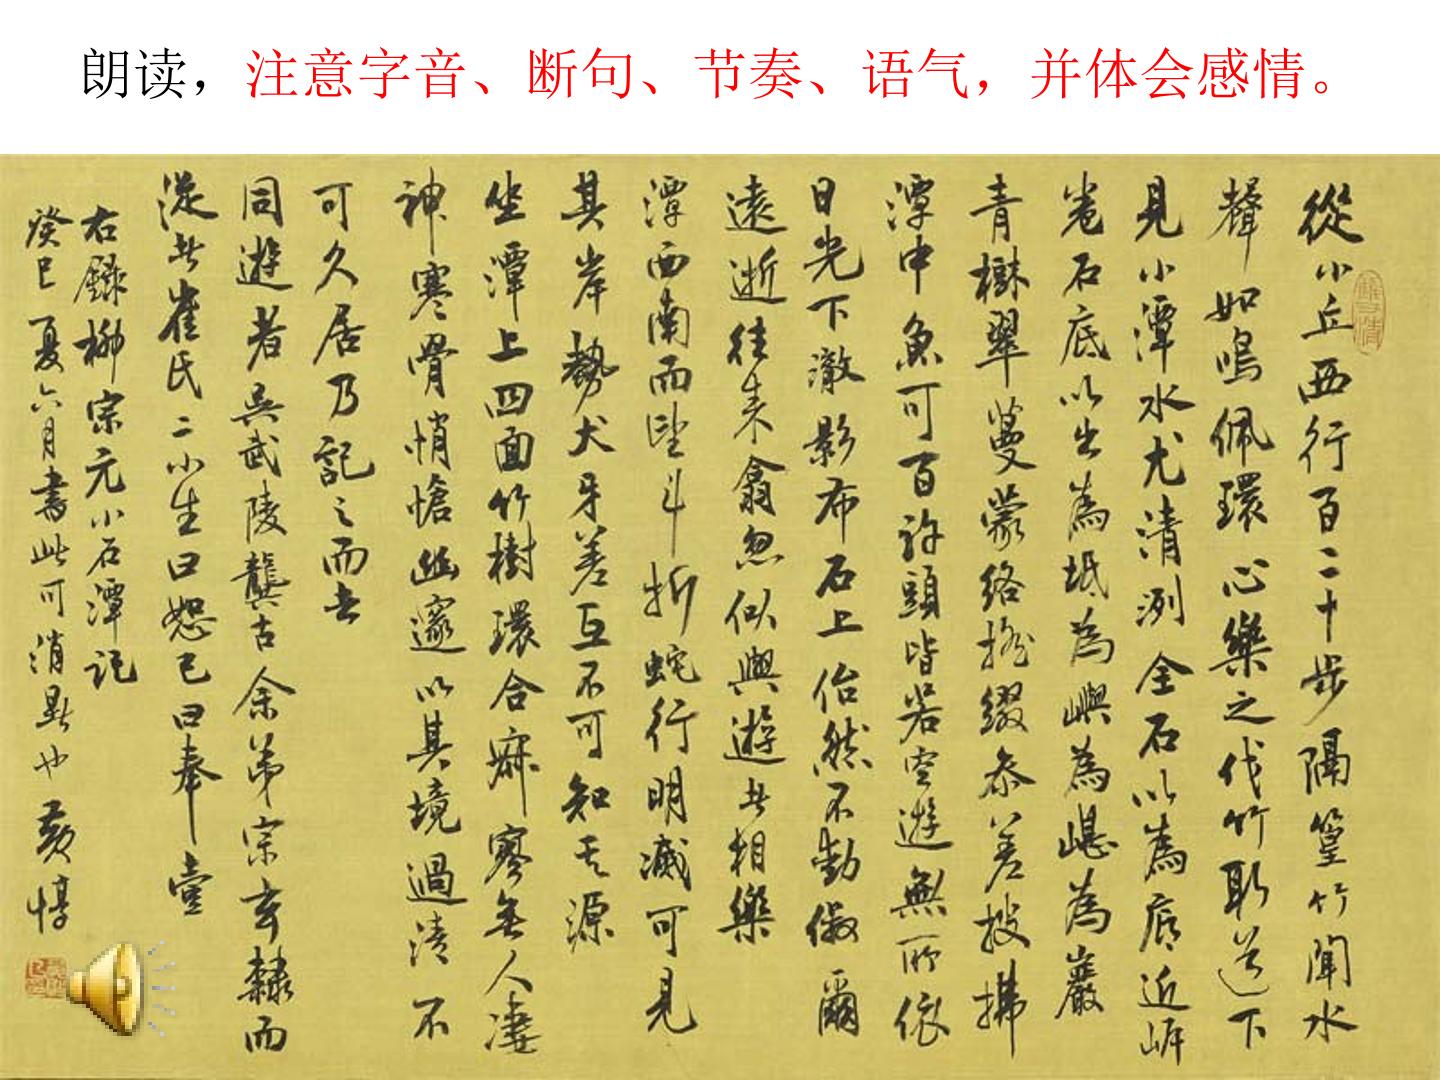 朗读，注意字音、断句、节奏、语气，并体会感情。
從小丘西行百二十步隔篁竹聞水
聲如鳴佩環心樂之伐竹取道下
見小潭水尤清洌全石以為底近岸
卷石底以出為坻為嶼為嵁為巖
青樹翠蔓蒙絡搖綴參差披拂
潭中魚可百許頭皆若空遊無所依
日光下澈影布石上佁然不動俶爾
遠逝往來翕忽似與遊者相樂
潭西南而望斗折蛇行明滅可見
其岸勢犬牙差互不可知其源
坐潭上四面竹樹環合寂寥無人凄
神寒骨悄愴幽邃以其境過清不
可久居乃記之而去
同遊者吳武陵龔古余弟宗玄隸而
從者崔氏二小生曰恕己曰奉壹
右錄柳宗元小石潭記
癸巳夏六月書此可消暑也 黃惇